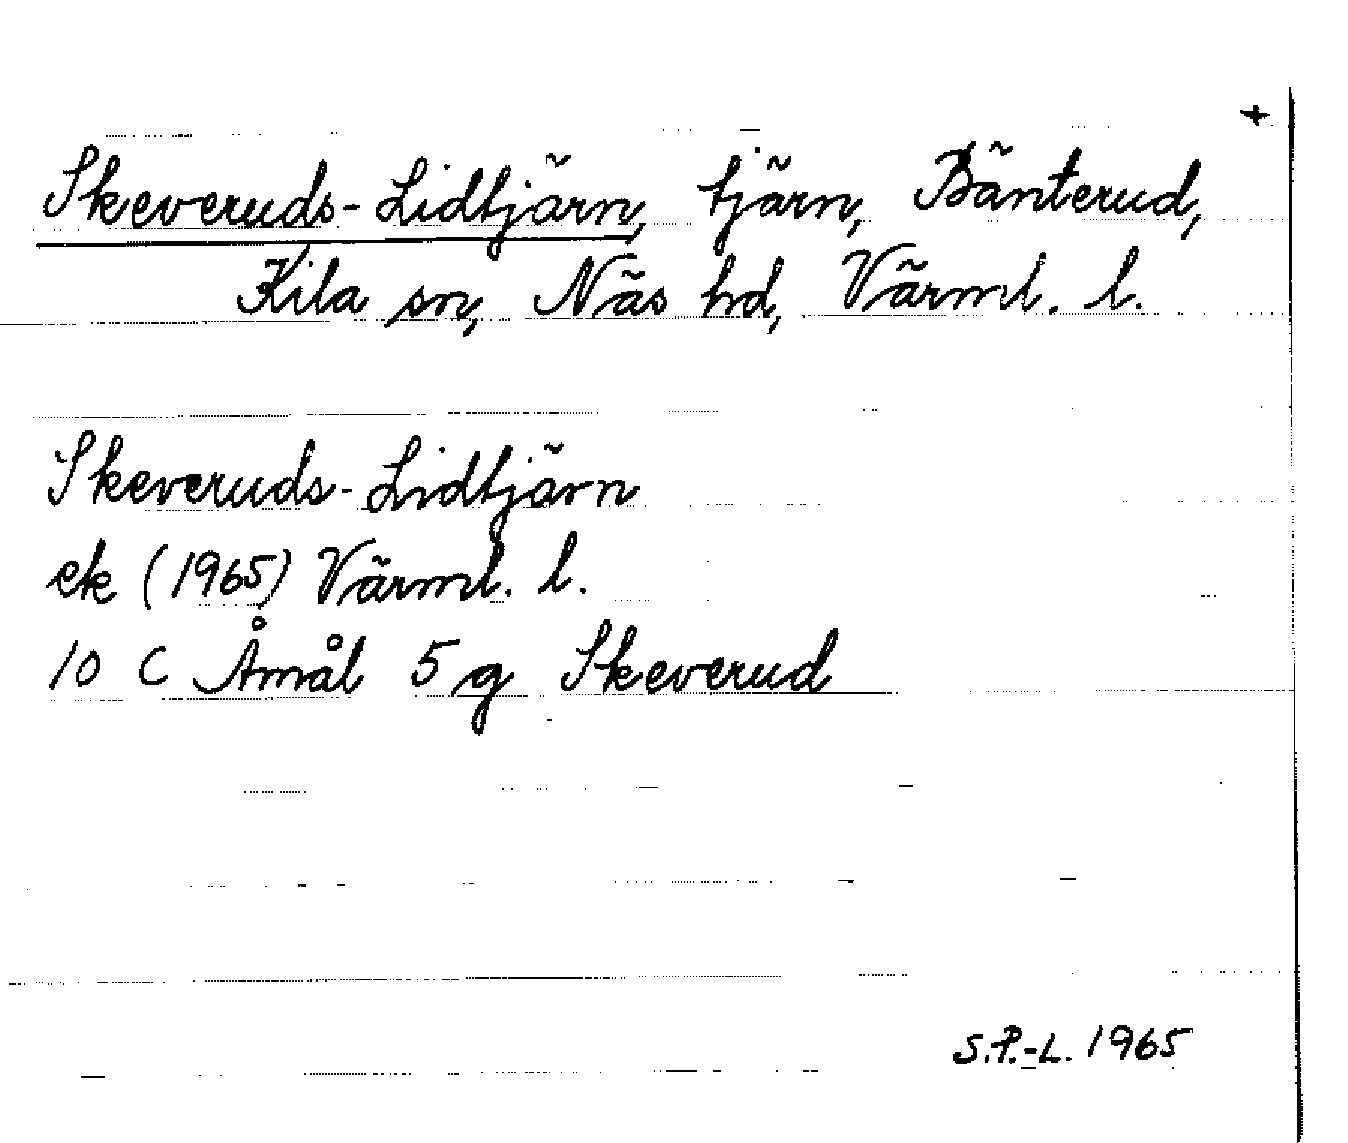 +
Skeveruds-Lidtjärn, tjärn, Bänterud,
Kila sn, Näs hd, Värml. l.
Skeveruds-Lidtjärn
ek (1965) Värml. l.
10 C Åmål 5 g Skeverud
S.P.-L. 1965